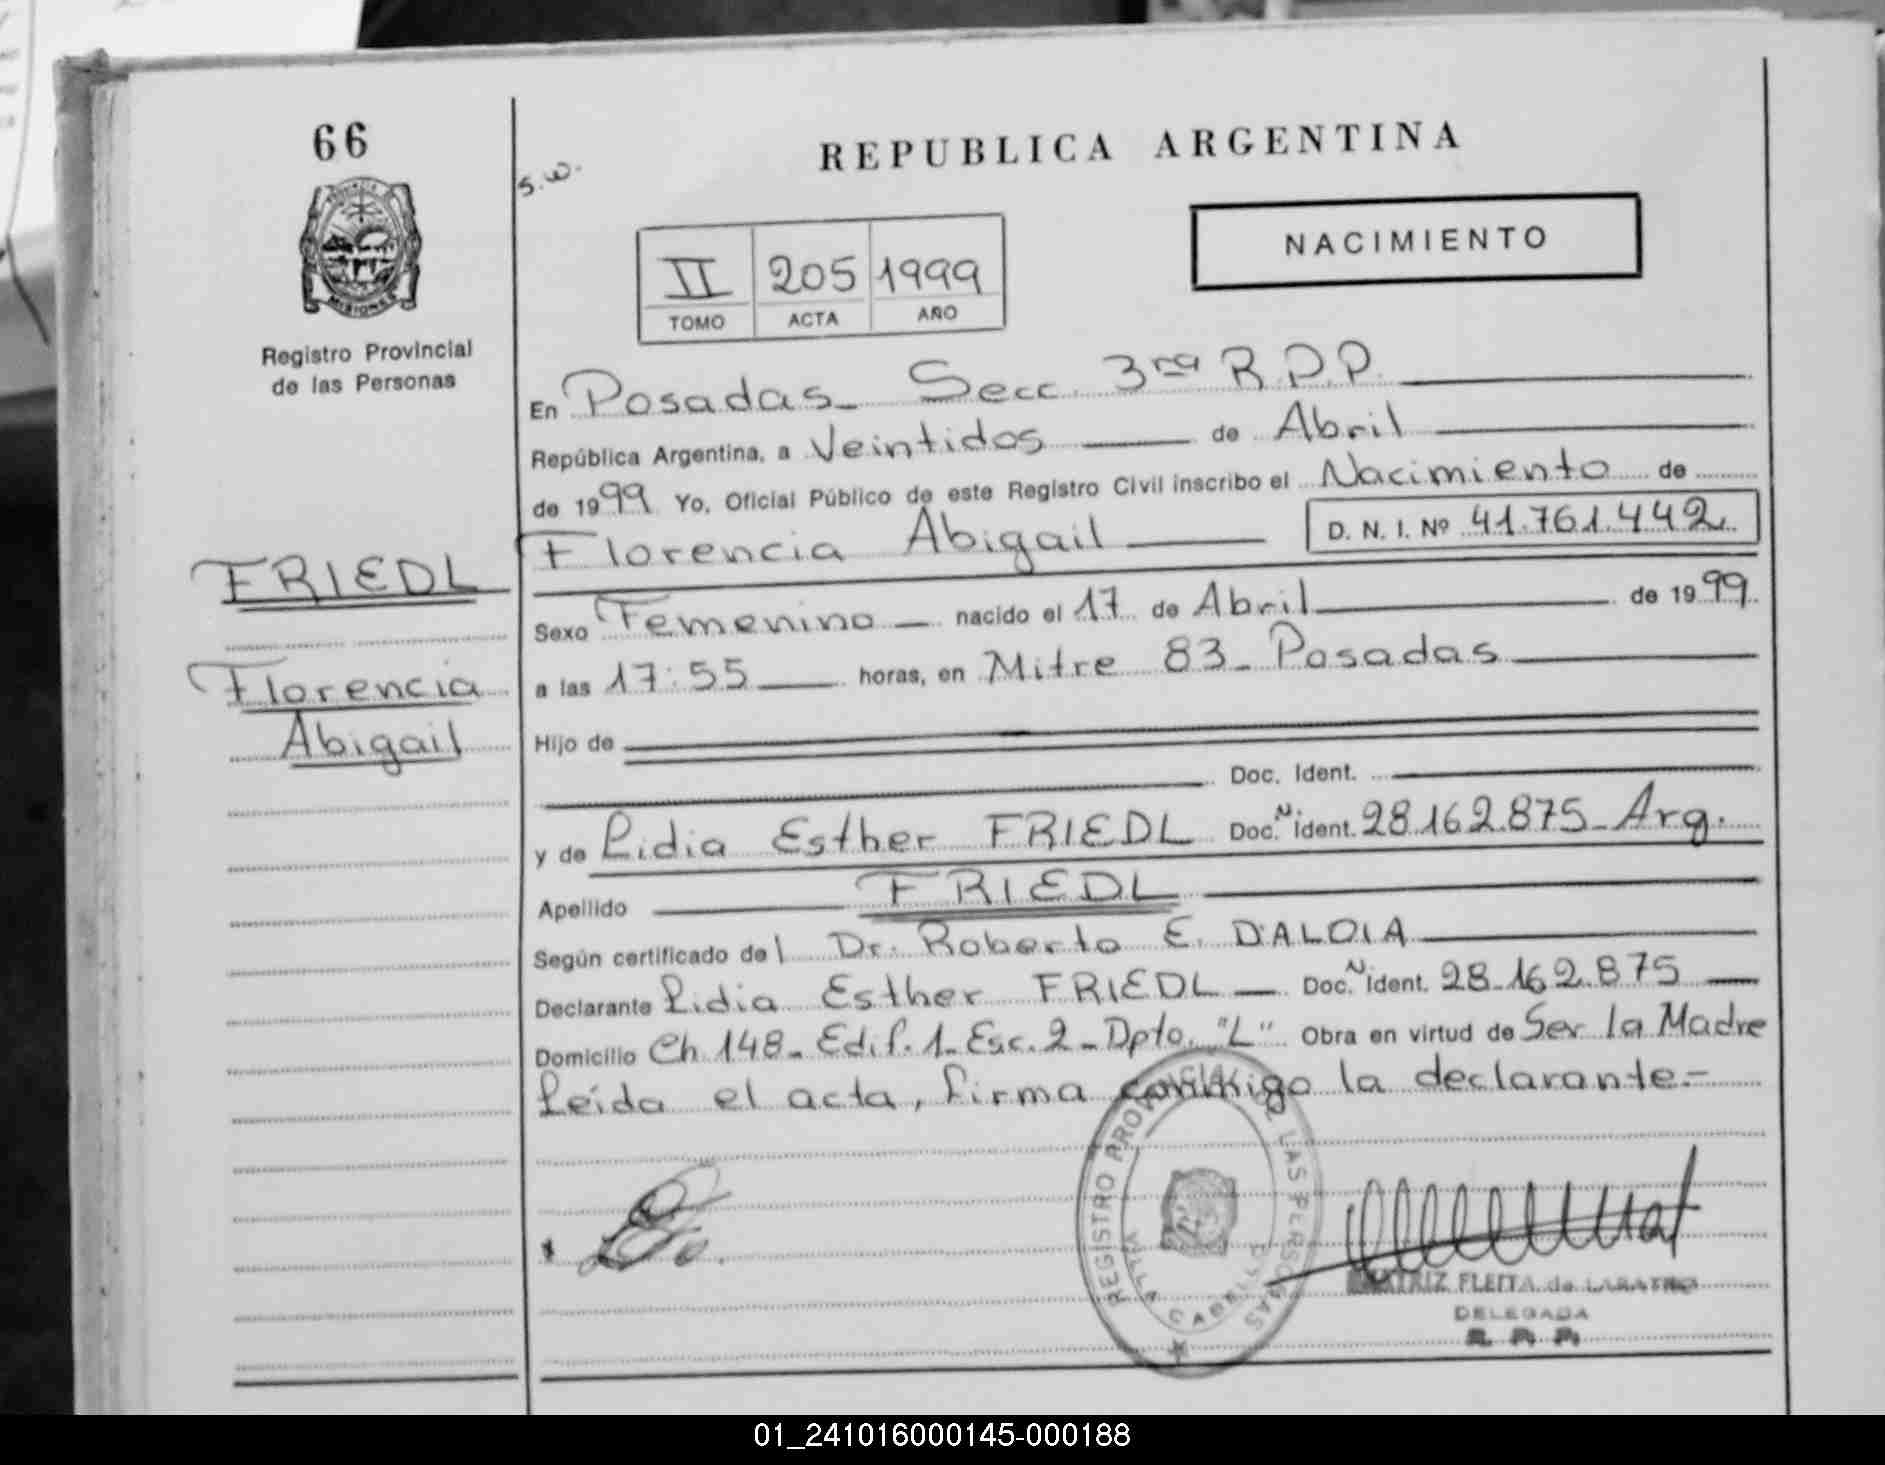 66
REPUBLICA ARGENTINA
s.w.
NACIMIENTO
II 205 1999
TOMO ACTA AÑO
MISIONES
Registro Provincial
de las Personas
En Posadas_ Secc. 3ra R.P.P.
República Argentina, a Veintidos de Abril
de 1999 Yo, Oficial Público de este Registro Civil inscribo el Nacimiento de
Florencia Abigail D. N. I. Nº 41.761.442
FRIEDL
Sexo Femenino nacido el 17 de Abril de 1999
Florencia
a las 17:55 horas, en Mitre 83_ Posadas
Abigail
Hijo de
Doc. Ident.
y de Lidia Esther FRIEDL Doc. N Ident. 28.162.875_Arg.
Apellido FRIEDL
Según certificado del Dr. Roberto E. D'ALOIA
Declarante Lidia Esther FRIEDL Doc. N Ident. 28.162.875
Domicilio Ch 148_ Edif. 1_ Esc. 2_ Dpto. "L" Obra en virtud de Ser la Madre
Leída el acta, firma conmigo la declarante.-
REGISTRO PROVINCIAL DE LAS PERSONAS
VILLA CABELLO
BEATRIZ FLEITA de
DELEGADA
R. P. P.
01_241016000145-000188